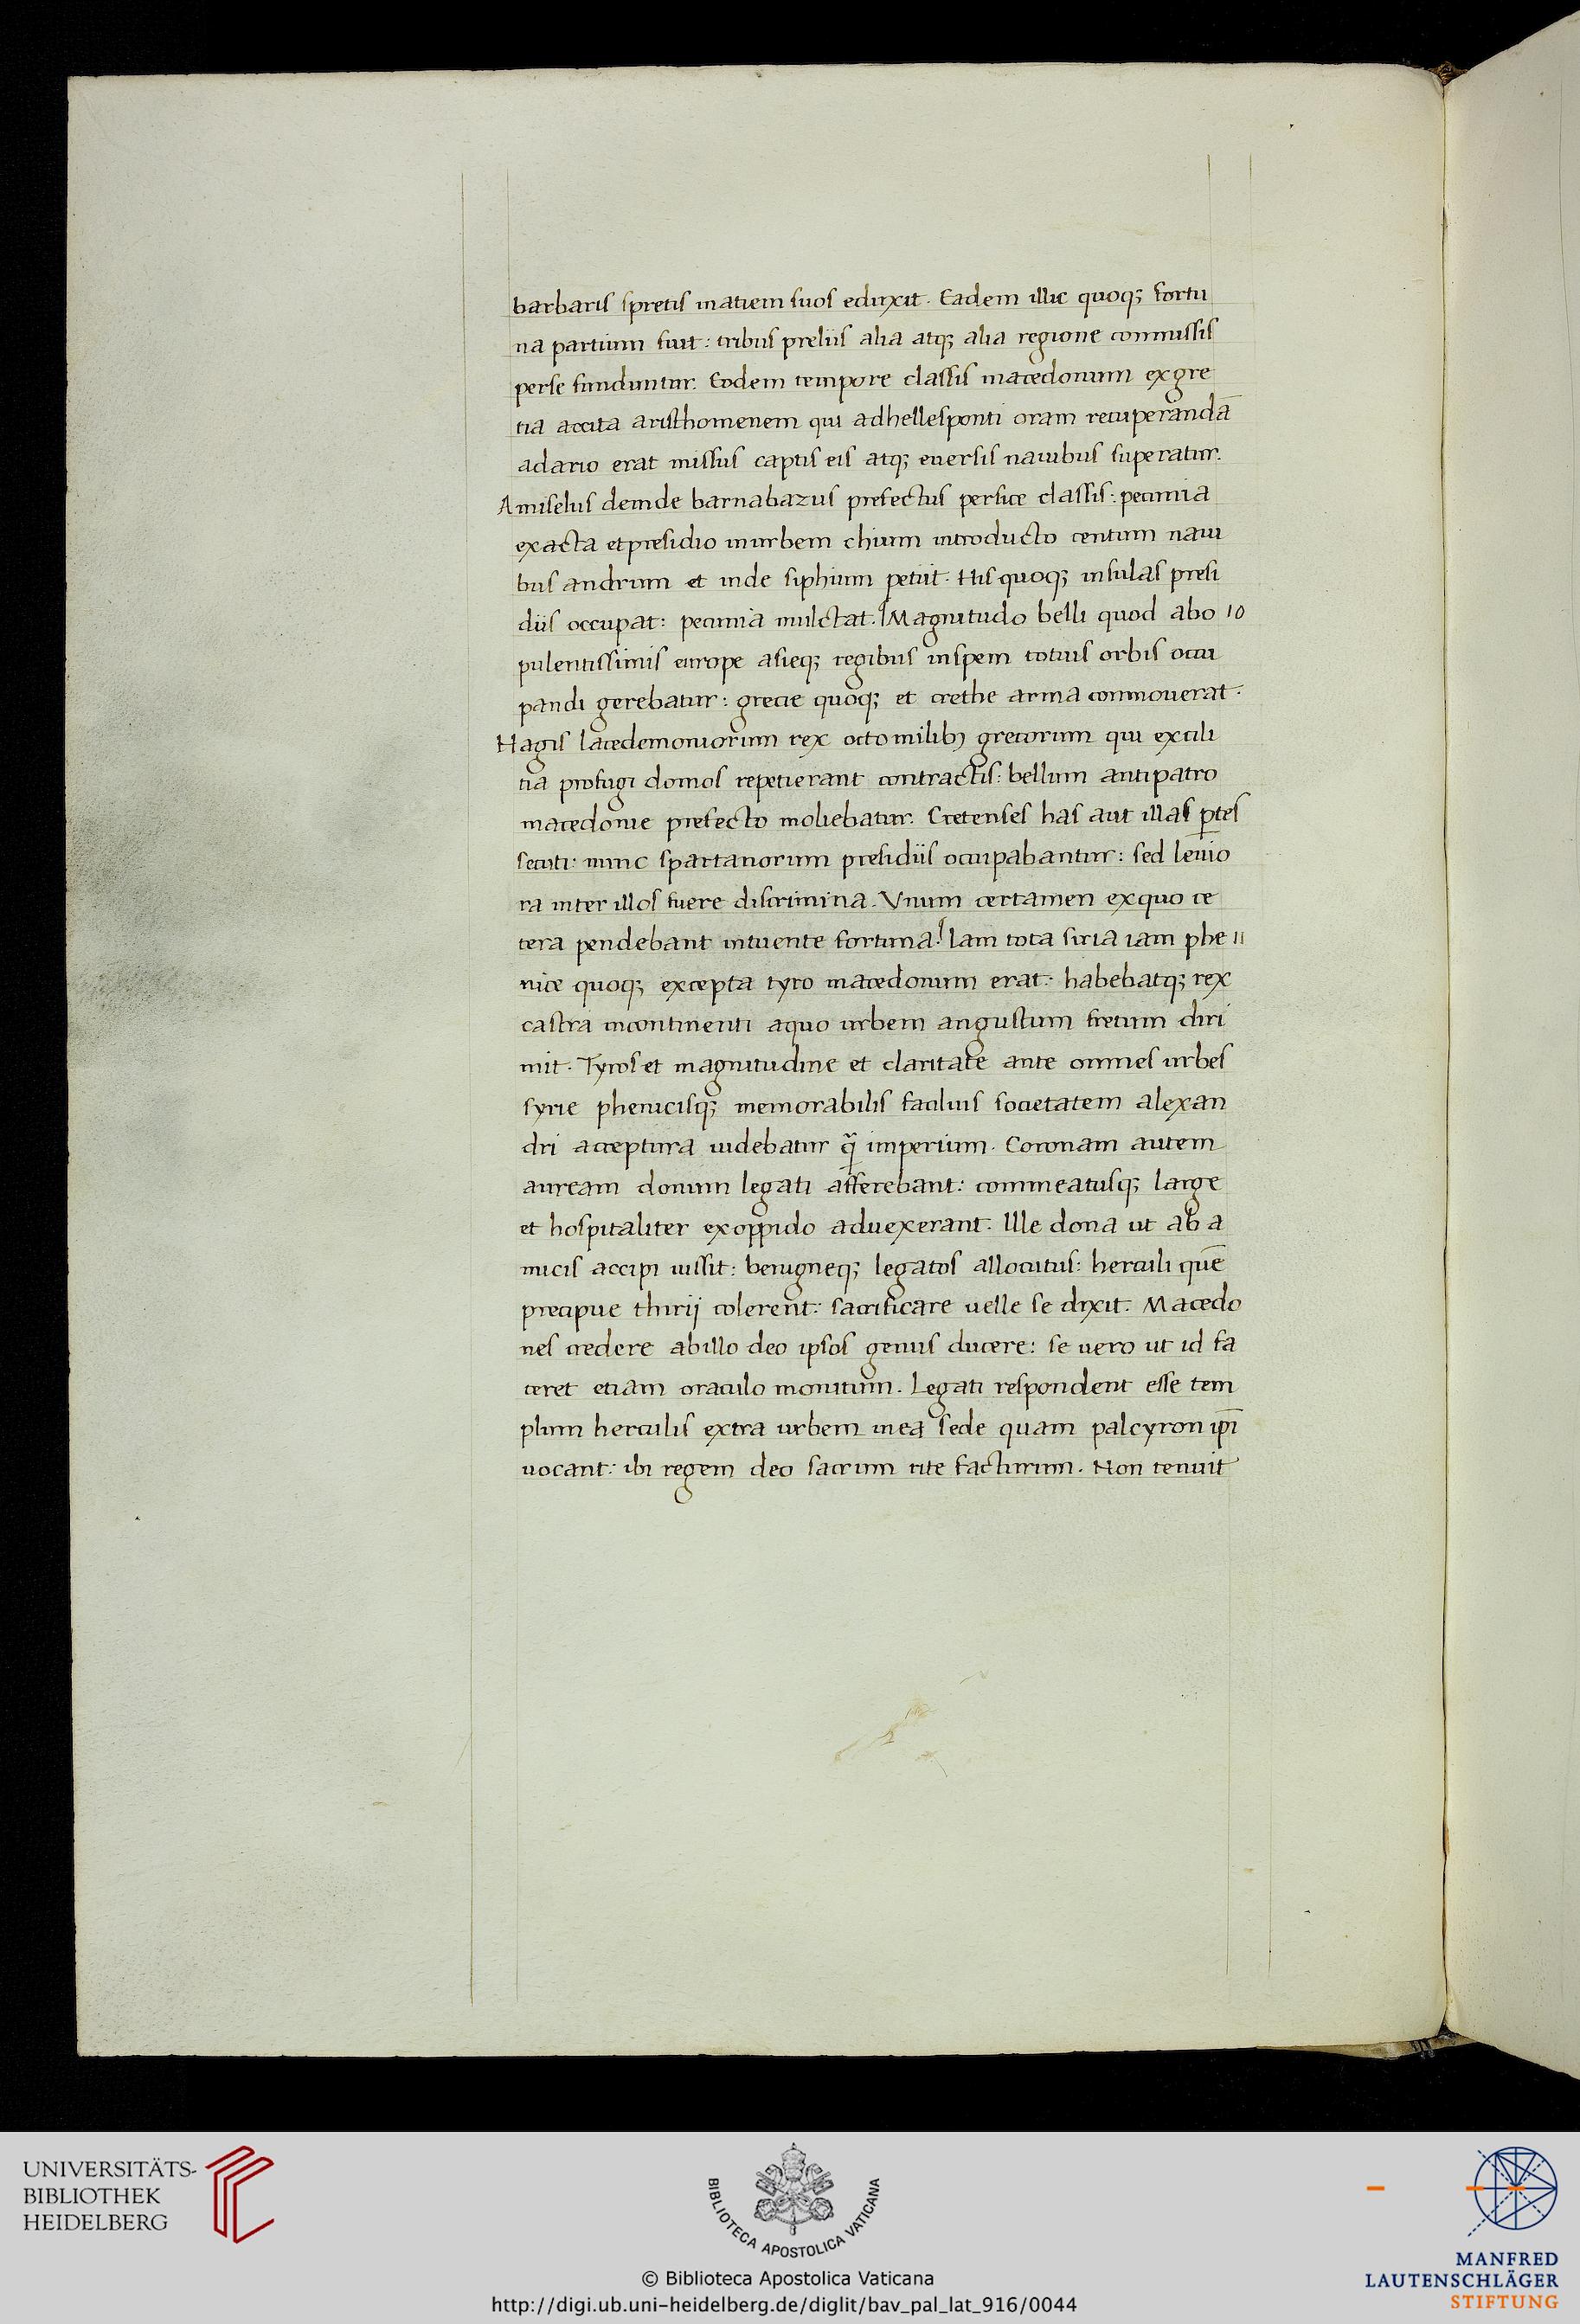 barbaris spretis inatiem suos eduxit. Eadem illic quoq; fortu
na partium fuit: tribus preliis alia atq; alia regione commissis
perse funduntur. Eodem tempore classis macedonum exgre
tia accita aristhomenem qui adhellesponti oram recuperandā
adario erat missus captis eis atq; euersis nauibus superatur.
Amiselus deinde barnabazus prefectus persice classis: pecunia
exacta etpresidio inurbem chium introducto centum naui
bus andrum et inde siphium petiit. His quoq; insulas presi
diis occupat: pecunia mulctat. Magnitudo belli quod abo 10
pulentissimis europe asieq; regibus inspem totius orbis occu
pandi gerebatur: grecie quoq; et crethe arma commouerat.
Hagis lacedemoniorum rex octomilibꝫ grecorum qui excili
tia profugi domos repetierant contractis: bellum antipatro
macedonie prefecto moliebatur. Cretenses has aut illas ꝑtes
secuti: nunc spartanorum presidiis occupabantur: sed leuio
ra inter illos fuere discrimina. Vnum certamen exquo ce
tera pendebant intuente fortuna. Iam tota siria iam phe 11
nice quoq; excepta tyro macedonum erat: habebatq; rex
castra incontinenti aquo urbem angustum fretum diri
mit. Tyros et magnitudine et claritate ante omnes urbes
syrie phenicisq; memorabilis facilius societatem alexan
dri acceptura uidebatur q̃ imperium. Coronam autem
auream donum legati afferebant: commeatusq; large
et hospitaliter exoppido aduexerant. Ille dona ut ab a
micis accipi iussit: benigneq; legatos allocutus: herculi quē
precipue thirij colerent: sacrificare uelle se dixit. Macedo
nes credere abillo deo ipsos genus ducere: se uero ut id fa
ceret etiam oraculo monitum. Legati respondent esse tem
plum herculis extra urbem inea sede quam palcyron ip̄i
uocant: ibi regem deo sacrum rite facturum. Non tenuit
UNIVERSITÄTS-
BIBLIOTHEK
HEIDELBERG
BIBLIOTECA APOSTOLICA VATICANA
© Biblioteca Apostolica Vaticana
http://digi.ub.uni-heidelberg.de/diglit/bav_pal_lat_916/0044
MANFRED
LAUTENSCHLÄGER
STIFTUNG